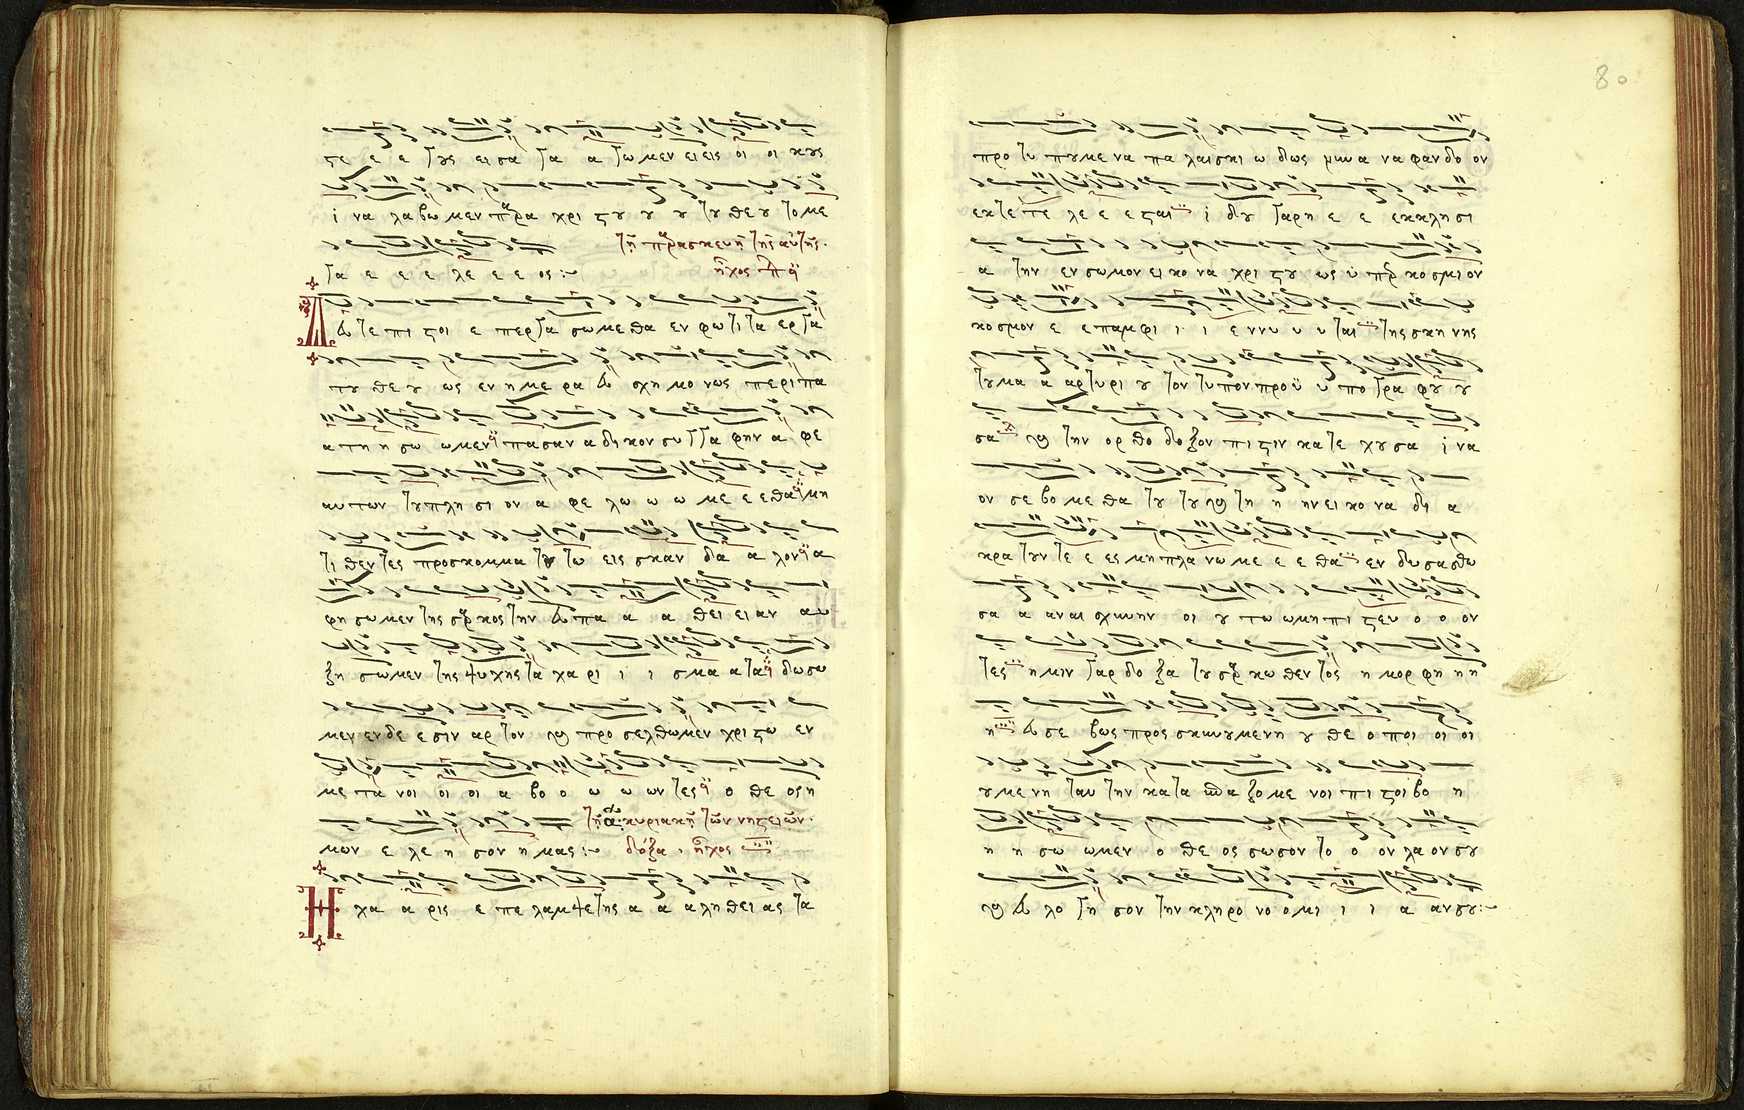 στε ε ε γυς εισα γα α γωμεν ει εις οι οι κυς
ι να λα βωμεν παρα χρι στου ου ου του θεου το με
γα ε ε ε λε ε ε ος :~ τῇ παρασκευῇ τῆς αὐτῆς·
ἦχος πα
Δευτε πι στοι ε περγα σωμεθα εν φωτι τα εργα
του θεου ως εν ημερα ευ σχημο νως περιπα
α τη η σω ωμεν πασαν αδικον συγγρα φην α φε
αυτων του πλη σι ον α φε λω ω ω με ε ε θα μη
τι θεντες προσκομμα του τω εις σκαν δα α λον α
φη σωμεν της σαρκος την ευ πα α α θει ει αν αυ
ξη σωμεν της ψυχης τα χα ρι ι ι σμα α τα δωσω
μεν ενδε ε σιν αρτον και προ σελθωμεν χριστω εν
με τα νοι οι οι α βο ο ω ω ωντες ο θε ος η
μων ε λε η σον η μας :~ τῇ α: κυριακῇ τῶν νηστειῶν·
δόξα · ἦχος
Η χα α ρις ε πε λαμψε της α α α ληθει ας τα
80
προ τυ πουμε να πα λαι σκι ω δως μυν α ναφαν δο ον
εκτε τε λε ε ε σται ι δου γαρ η ε ε εκκλησι
α την εν σωμον ει κο να χρι στου ως υ περ κοσμι ον
κοσμον ε ε παμφι ι ι ι ε ννυ υ υ ται της σκη νης
του μα α αρτυρι ου τον τυπον προ υ υ πο γρα φου ου
σα και την ορ θο δο ξον πι στιν κατε χουσα ι να
ον σε βο με θα του του και τη η ην ει κο να δι α
κρα τουντε ε ες μη πλα νωμε ε ε θα εν δυ σασθω
σα α αν αισχυνην οι ου τω ωμη πι στευ ο ο ον
τες ημιν γαρ δο ξα του σαρκωθεντος η μορ φη η η
η ευ σε βως προς κυνουμενη ου θε ο ποι οι οι
ουμε νη ταυ την κατα σπα ζο με νοι πι στοι βο η
η η σω ωμεν ο θε ος σωσον το ο ον λα ον σου
και ευ λο γη σον την κληρο νο ο μι ι ι α αν σου :~